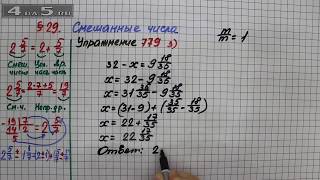 4 ПА 5 РУ
§ 29. Смешанные числа
Упражнение 779 3)
m/m = 1
2 5/7 = 2 + 5/7
Смеш. Цел. Др.
число часть часть
2 5/7 = 2·7+5/7 = 19/7
См.ч. Непр.др.
32 - x = 9 18/35
x = 32 - 9 18/35
x = 31 35/35 - 9 18/35
x = (31-9) + (35/35 - 18/35)
x = 22 + 17/35
x = 22 17/35
Ответ: 2